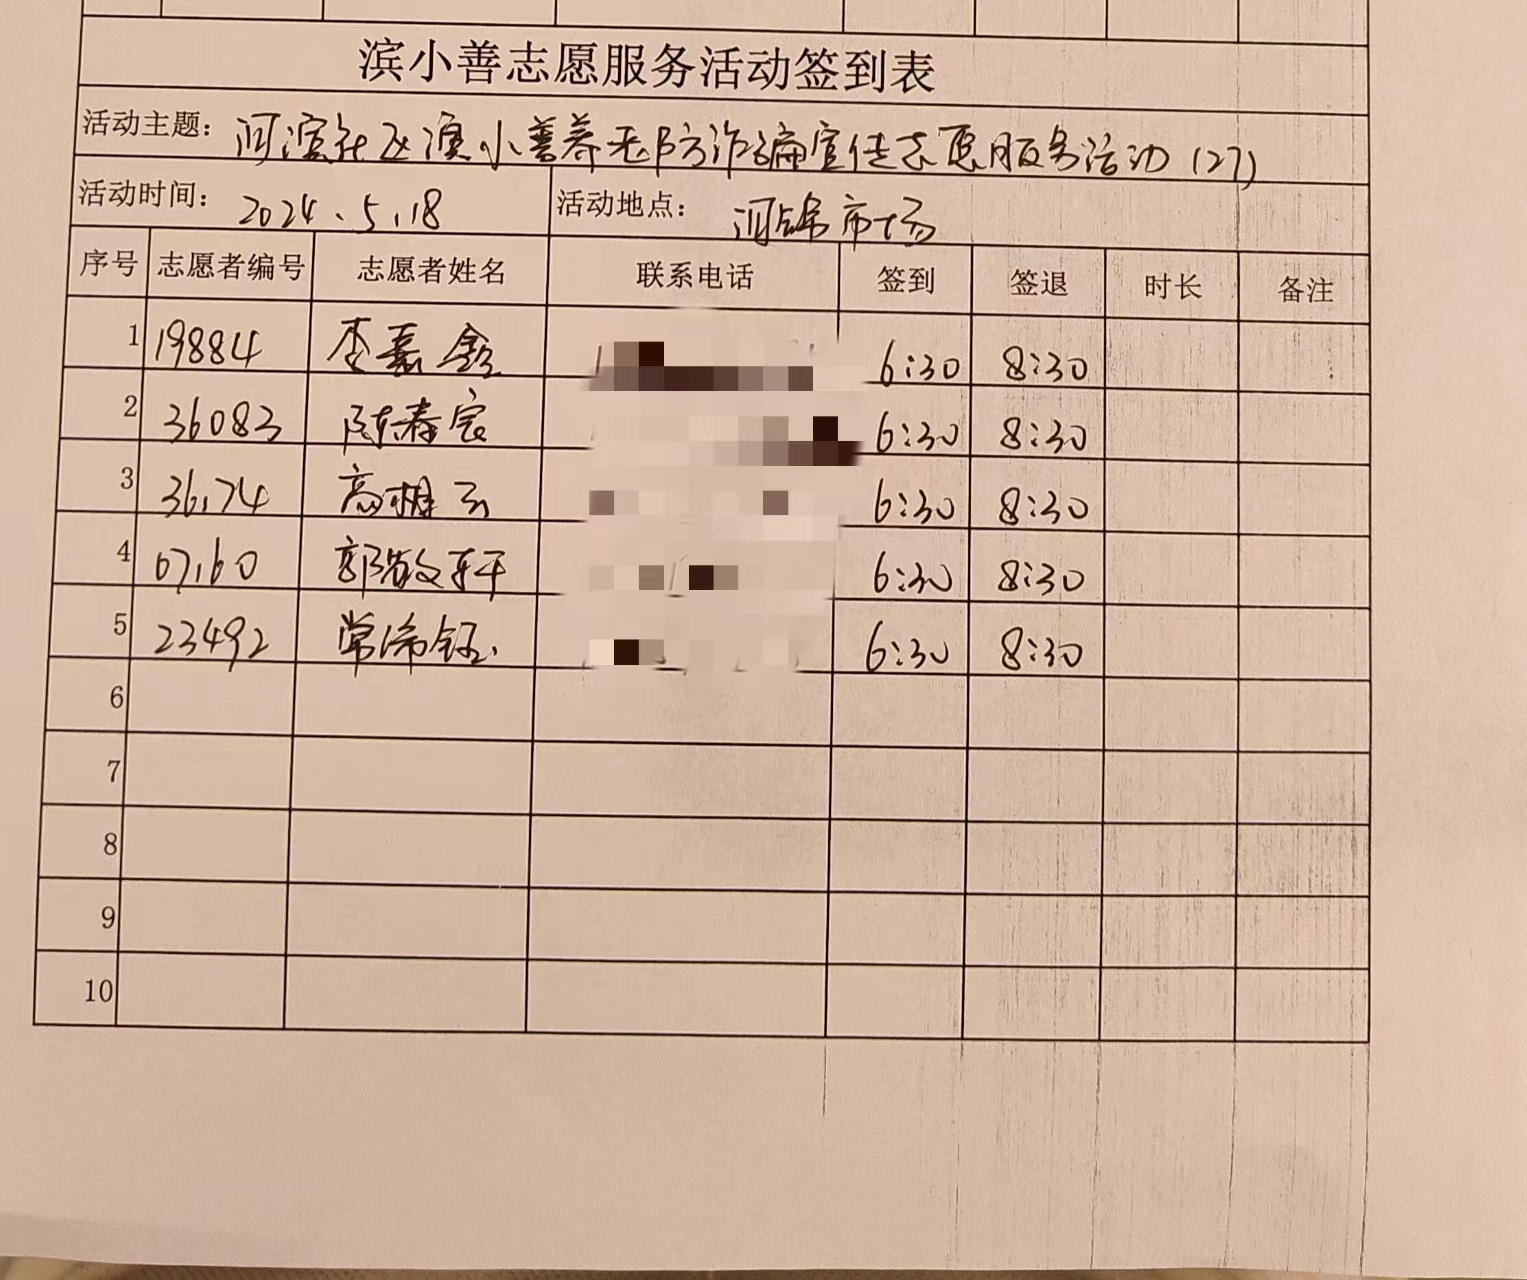 滨小善志愿服务活动签到表
活动主题： 河滨社区滨小善养老防诈骗宣传志愿服务活动(27)
活动时间： 2024.5.18 活动地点： 河锦市场
序号 志愿者编号 志愿者姓名 联系电话 签到 签退 时长 备注
1 19884 李嘉鑫 6:30 8:30
2 36083 陈春宸 6:30 8:30
3 36174 高 6:30 8:30
4 07160 郭敬轩 6:30 8:30
5 23492 常 钰 6:30 8:30
6
7
8
9
10